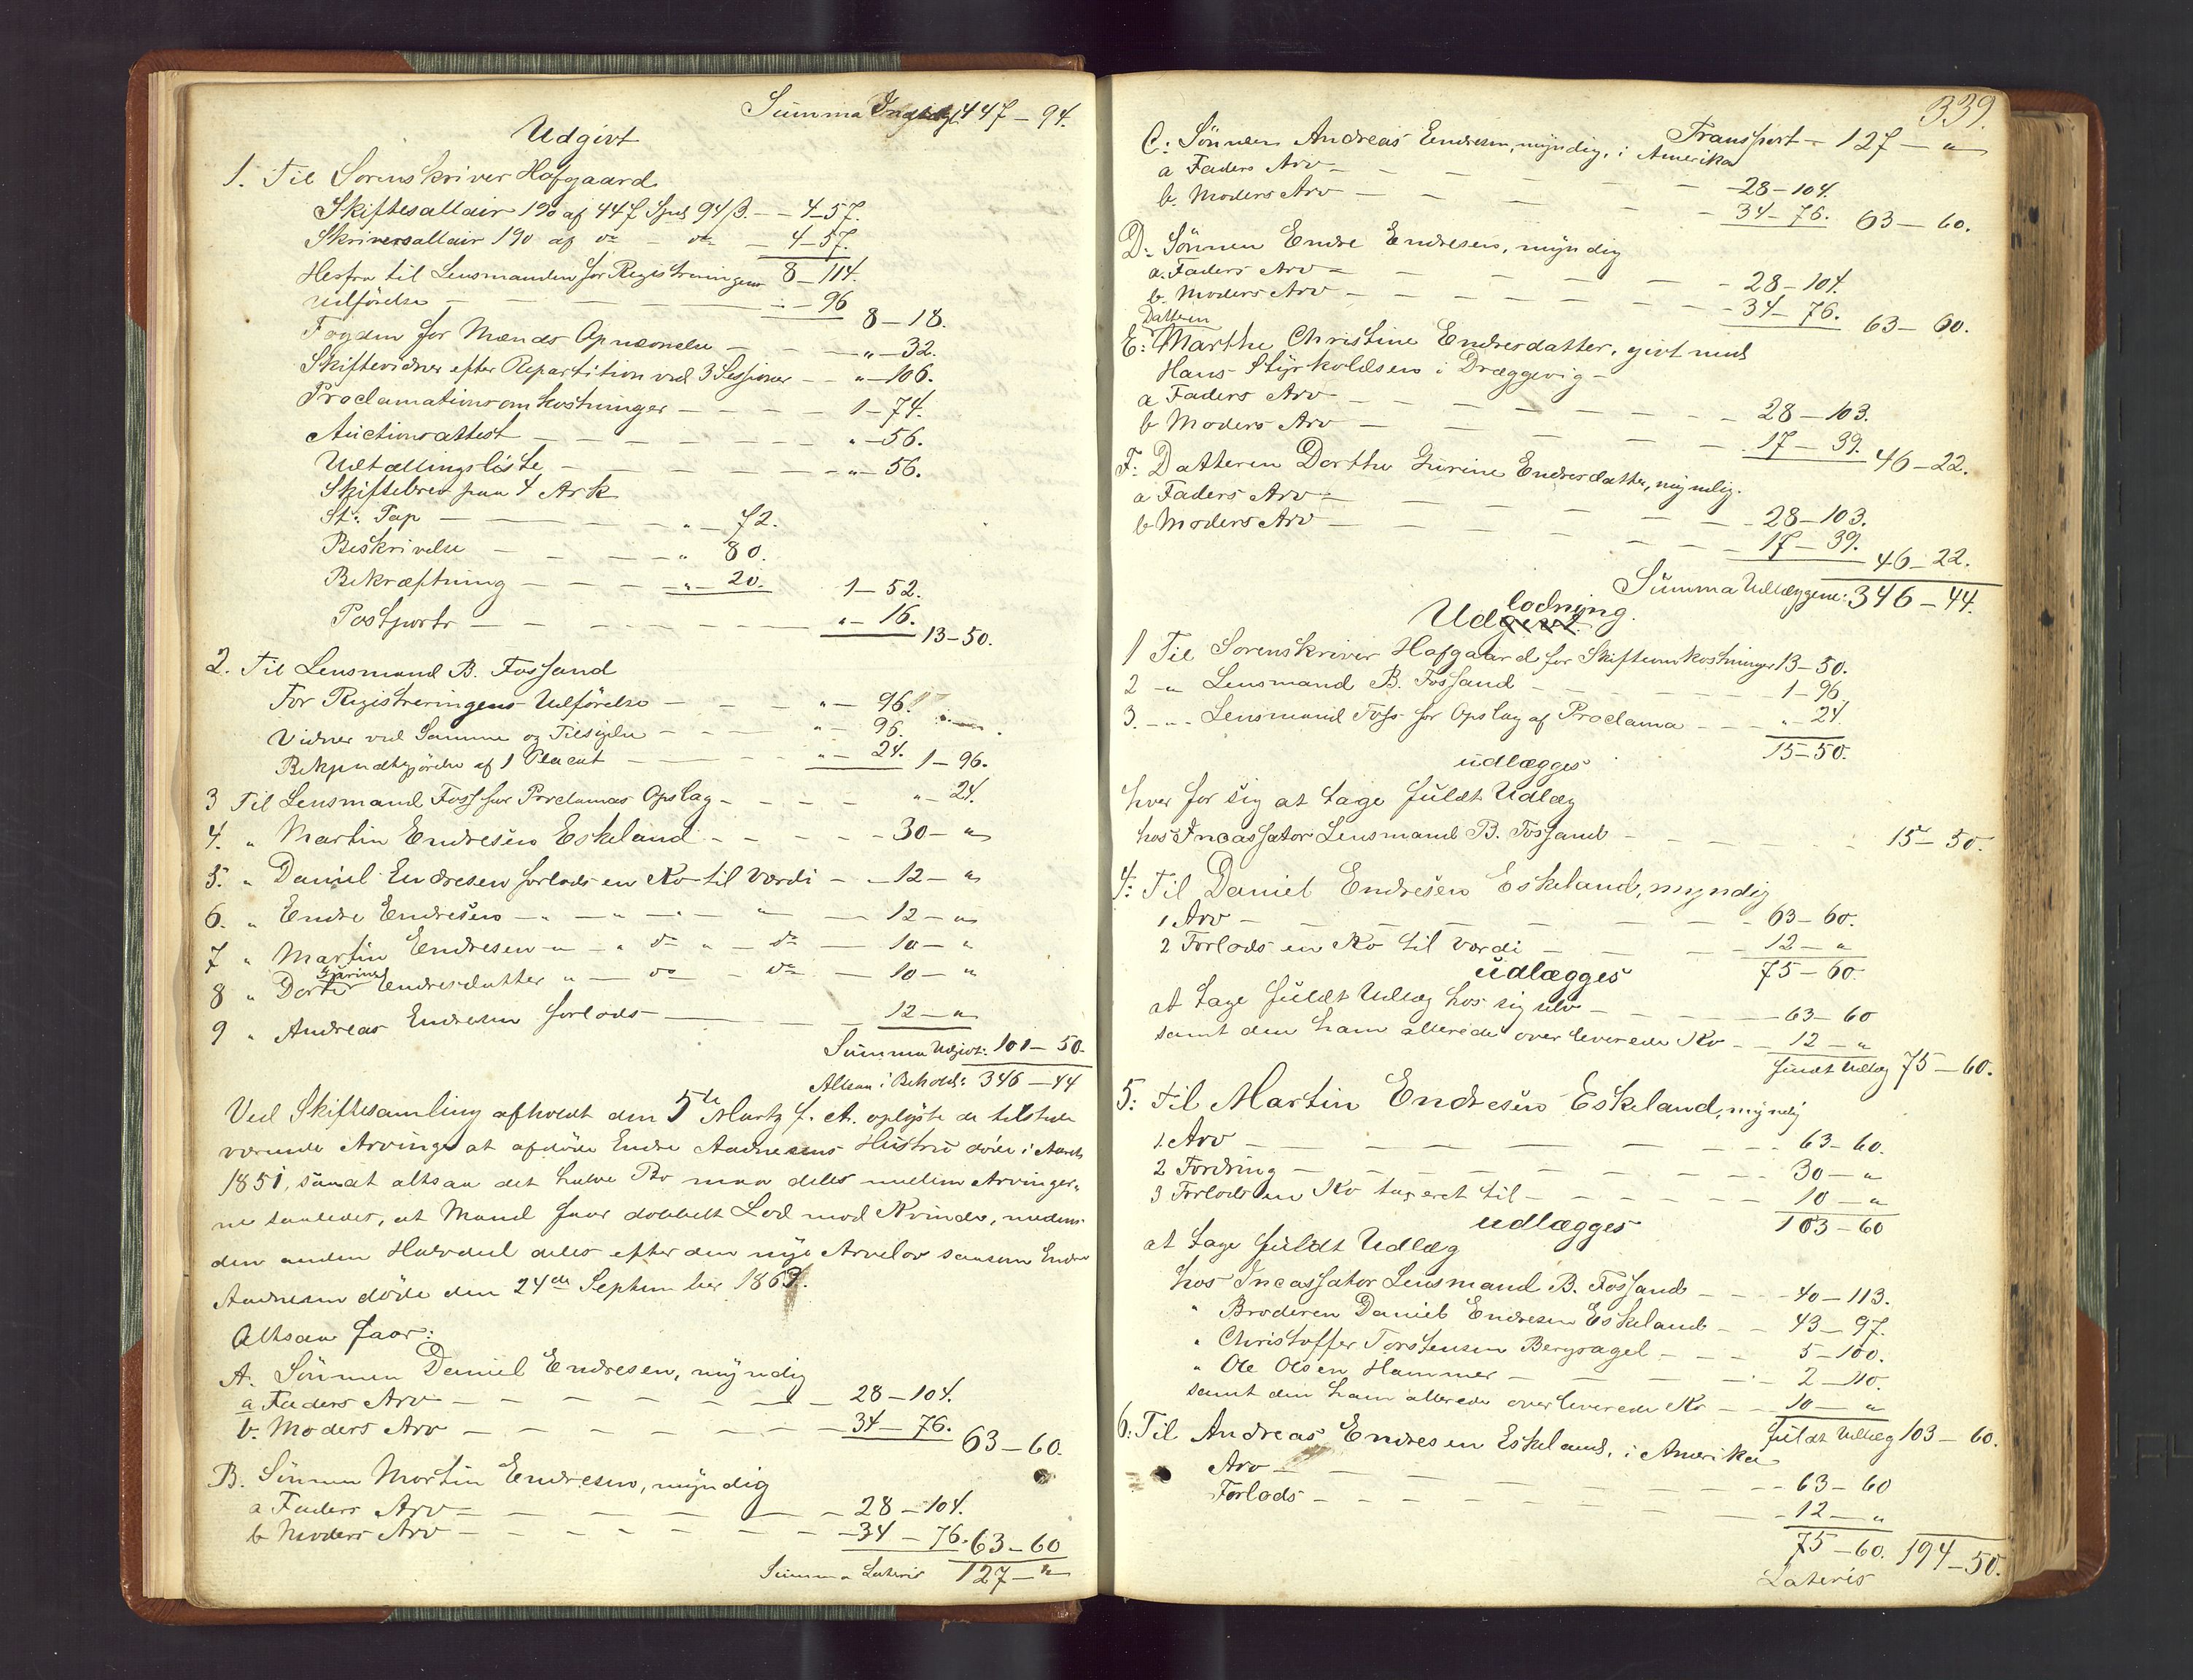 Summa Indtægt 447 – 94.
Udgivt
1. Til Sorenskriver Hofgaard
Skiftesallair 1% af 447 Spd 94 ß. – – 4–57.
Skriversallair 1% af do – do – 4–57.
8–114.
Herfra til Lensmanden for Registreringens
Udförelse – – – „–96 8–18.
Fogden for Mænds Opnævnelse – – – „–32.
Skiftevidner efter Repartition ved 3 Sessioner – – „–106.
Proclamationsomkostninger – – – – 1–74.
Auctionsattest – – – – – „–56.
Udtællingsliste – – – – – „–56.
Skiftebrev paa 4 Ark
St: Pap – – – – „–72.
Beskrivelse – – – – „ 80.
Bekræftning – – – – „–20. 1–52.
Postporto – – – – – „–16. 13–50.
2. Til Lensmand B. Fossand
For Registreringens Udförelse – – – „–96.
Vidner ved Samme og Tilsigelse – – – „ 96.
Bekjendtgjörelse af 1 Placat – – – „–24. 1–96.
3 Til Lensmand Foss for Proclamas Opslag – – – – „–24.
4. „ Martin Endresen Eskeland – – – – 30– „
5. „ Daniel Endresen forlods en Ko til Værdi – – 12– „
6. „ Endre Endresen – „ – „ – „ – „ – 12– „
7 „ Martin Endresen „ – „ do „ – do – 10– „
8 „ Dorte Gurine Endresdatter „ – do – do – 10– „
9 „ Andreas Endresen forlods – – – 12– „
Summa Udgivt: 101–50.
Altsaa i Behold: 346–44
Ved Skiftesamling afholdt den 5te Martz f. A. oplyste de tilstede
værende Arvinger at afdöde Endre Aadnesens Hustru döde i Marts
1851, saa at altsaa det halve Bo maa deles mellem Arvinger„
ne saaledes, at Mand faar dobbelt Lod mod Kvinde, medens
den anden Halvdel deles efter den nye Arvelov saasom Endre
Aadnesen döde den 24de September 1867.
Altsaa faar:
A. Sönnen Daniel Endresen, myndig
a Faders Arv – – – – – – 28–104.
b. Moders Arv – – – – – – 34–76. 63–60.
B. Sönnen Martin Endresen, myndig
a Faders Arv – – – – – – 28–104.
b Moders Arv – – – – – – 34–76. 63–60
Summa Lateris 127– „
339.
Transport – 127– „
C: Sönnen Andreas Endresen, myndig, i Amerika
a Faders Arv – – – – – 28–104.
b. Moders Arv – – – – – 34–76. 63–60.
D. Sönnen Endre Endresen, myndig
a. Faders Arv – – – – – 28–104.
b. Moders Arv – – – – – 34–76. 63–60.
Datteren
E: Marthe Christine Endresdatter, givt med
Hans Styrkoldsen i Dræggevig –
a Faders Arv – – – – – 28–103.
b Moders Arv – – – – – 17–39. 46–22.
F: Datteren Dorthe Gurine Endresdatter, myndig.
a Faders Arv – – – – – 28–103.
b Moders Arv – – – – – 17–39. 46–22.
Summa Udlæggene: 346–44.
Udlodning.
1 Til Sorenskriver Hofgaard for Skifteomkostninger 13–50.
2 – „ Lensmand B. Fossand – – – – 1–96
3. – „ – Lensmand Foss for Opslag af Proclama – – – „ 24.
15–50.
udlægges
hver for sig at tage fuldt Udlæg
hos Incassator Lensmand B. Fossand – – – – 15–50.
4: Til Daniel Endresen Eskeland, myndig
1 Arv – – – – – – 63–60.
2 Forlods en Ko til Værdi – – – 12– „
75–60.
udlægges
at tage fuldt Udlæg hos sig selv – – – – 63–60
samt den ham allerede overleverede Ko – – 12– „
fuldt Udlæg 75–60.
5: Til Martin Endresen Eskeland, myndig
1. Arv – – – – – – 63–60.
2 Fordring – – – – – – 30– „
3 Forlods en Ko taxeret til – – – – 10– „
103–60
udlægges
at tage fuldt Udlæg
hos Incassator Lensmand B. Fossand – – – 40–113.
„ Broderen Daniel Endresen Eskeland – – 43–97.
„ Christoffer Torstensen Bergsagel – – – 5–100.
„ Ole Olsen Hammer – – – – 2–110.
samt den ham allerede overleverede Ko – – 10– „
fuldt Udlæg 103–60.
6: Til Andreas Endresen Eskeland, i Amerika
Arv – – – – – – 63–60
Forlods – – – – – 12– „
75–60. 194–50.
Lateris